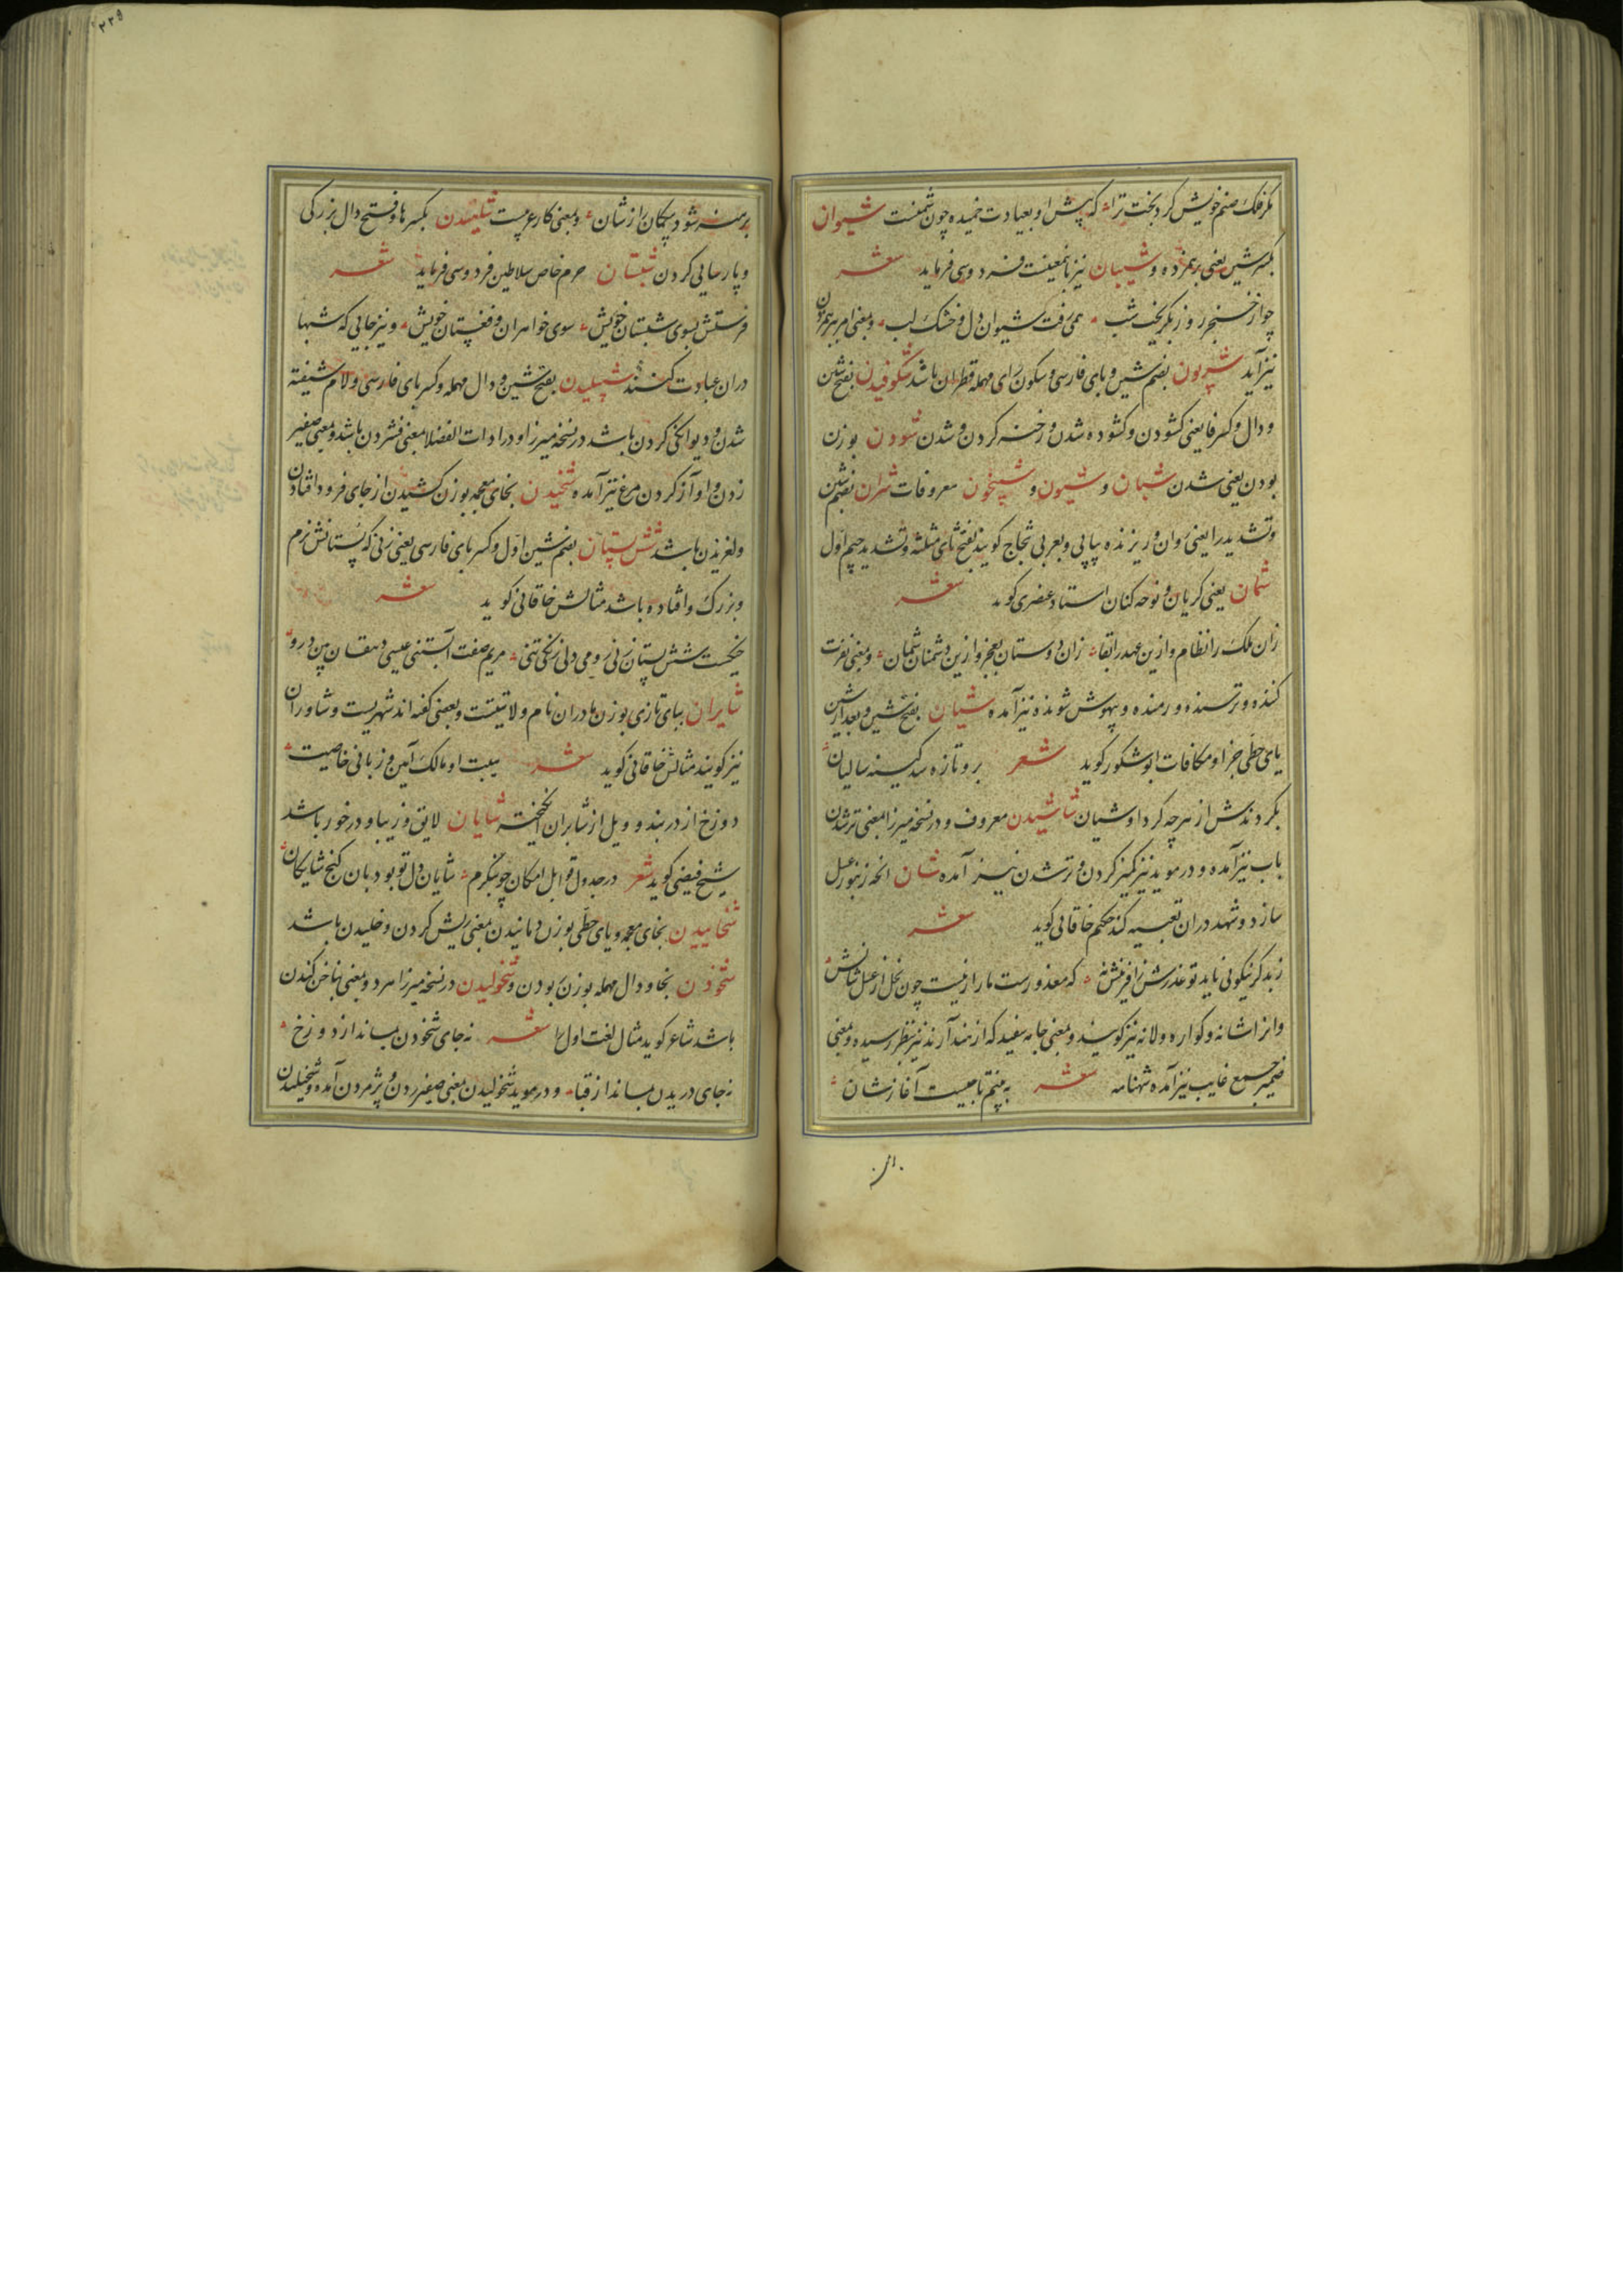 مکر فلک صنم خویش کرد بخت ترا که پیش او بعبادت خمیده چون شمنست شیوان
بکسر شین یعنی برهمزده و شیبان نیز بامعینست فردوسی فرماید شعر
چو از خنجر روز بگریخت شب همی رفت شیوان دل و خشک لب و بمعنی امر بر همزدن
نیز آید شپربون بضم شین و بای فارسی و سکون رای مهمله قطران باشد شکوفیدن بفتح شین
و دال و کسر فا یعنی کشودن و کشوده شدن و رخنه کردن و شدن شودن بوزن
بودن یعنی شدن شبان و شیون و شبیخون معروفات شران بضم شین
و تشدید را یعنی روان و ریزنده پیاپی و بعربی ثجاج کویند بفتح ثای مثلثه و تشدید جیم اول
شمان یعنی کریان و نوحه کنان استاد عنصری کوید شعر
زان ملک را نظام و ازین عهد را بقا زان دوستان بفخر و ازین دشمنان شمان و بمعنی نفرت
کننده و ترسنده و رمنده و بیهوش شونده نیز آمده شیان بفتح شین و بعد از شین
یای حطی جزا و مکافات ابو شکور کوید شعر برو تازه شد کینه سالیان
بکردندش از هرچه کرد او شیان شاشیدن معروف و در نسخه میرزا بمعنی تر شدن
باب نیز آمده و در موید نیز کمیز کردن و تر شدن نیز آمده شان انچه زنبور عسل
سازد و شهد دران تعبیه کند حکیم خاقانی کوید شعر
ز بد کر نیکوئی ناید تو عذرش ز افرینش نه که معذورست مار از نیست چون نحل از عسل شانش
و انرا شانه و کواره و لانه نیز کویند و بمعنی جامه سفید که از هند آرند نیز بنظر رسیده و بمعنی
ضمیر جمع غایب نیز آمده شهنامه شعر به بینم تا چیست آغازشان
برهنه شود پیکان راز شان و بمعنی کار عربیست شلیدن بکسر ها و فتح دال بزرکی
و پارسایی کردن شبستان حرم خاص سلاطین فردوسی فرماید شعر
فرستش بسوی شبستان خویش سوی خواهران و فغستان خویش و نیز جایی که شبها
دران عبادت کنند شپیلیدن بفتح شین و دال مهمله و کسر بای فارسی و لام شیفته
شدن و دیوانکی کردن باشد در نسخه میرزا و در ادات الفضلا بمعنی فشردن باشد و بمعنی صفیر
زدن و اواز کردن مرغ نیز آمده شخیدن بخای معجمه بوزن کشیدن از جای فرود افتادن
و لغزیدن باشد شش پستان بضم شین اول و کسر بای فارسی یعنی زنی که پستانش نرم
و بزرک و افتاده باشد مثالش خاقانی کوید شعر
خیکست شش پستان زنی رومی دلی زنکی تنی مریم صفت آبستنی عیسی دهقان بین درو
شابران ببای تازی بوزن هادران نام ولایتیست و بعضی کفته اند شهریست و شاوران
نیز کویند مثالش خاقانی کوید شعر هیبت او مالک آیین و زبانی خاصیت
دوزخ از دربند و ویل از شابران انکیخته شایان لایق و زیبا و درخور باشد
شیخ فیضی کوید شعر در جدول قوابل امکان چو بنکرم شایان دل تو بود بان کنج شایکان
شخاییدن بخای معجمه و یای حطی بوزن دمانیدن بمعنی ریش کردن و خلیدن باشد
شخودن بخا و دال مهمله بوزن ربودن و شخولیدن در نسخه میرزا هر دو بمعنی بناخن کندن
باشد شاعر کوید مثال لغت اول را شعر نه جای شخودن بماند از دو رخ
نه جای دریدن بماند از قبا و در موید شخولیدن بمعنی صفیر زدن و پژمردن آمده و شخیلیدن